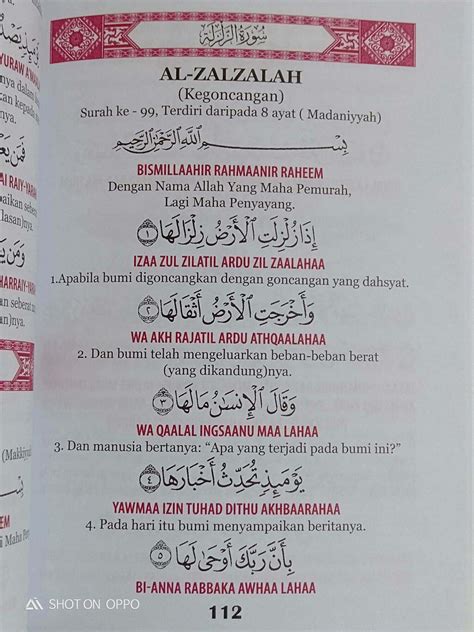 سُورَةُ الزَّلْزَلَةِ
AL-ZALZALAH
(Kegoncangan)
Surah ke - 99, Terdiri daripada 8 ayat ( Madaniyyah)
بِسْمِ اللَّهِ الرَّحْمَٰنِ الرَّحِيمِ
BISMILLAAHIR RAHMAANIR RAHEEM
Dengan Nama Allah Yang Maha Pemurah,
Lagi Maha Penyayang.
إِذَا زُلْزِلَتِ الْأَرْضُ زِلْزَالَهَا ١
IZAA ZUL ZILATIL ARDU ZIL ZAALAHAA
1.Apabila bumi digoncangkan dengan goncangan yang dahsyat.
وَأَخْرَجَتِ الْأَرْضُ أَثْقَالَهَا ٢
WA AKH RAJATIL ARDU ATHQAALAHAA
2. Dan bumi telah mengeluarkan beban-beban berat
(yang dikandung)nya.
وَقَالَ الْإِنسَٰنُ مَا لَهَا ٣
WA QAALAL INGSAANU MAA LAHAA
3. Dan manusia bertanya: “Apa yang terjadi pada bumi ini?”
يَوْمَئِذٍ تُحَدِّثُ أَخْبَارَهَا ٤
YAWMAA IZIN TUHAD DITHU AKHBAARAHAA
4. Pada hari itu bumi menyampaikan beritanya.
بِأَنَّ رَبَّكَ أَوْحَىٰ لَهَا ٥
BI-ANNA RABBAKA AWHAA LAHAA
112
SHOT ON OPPO